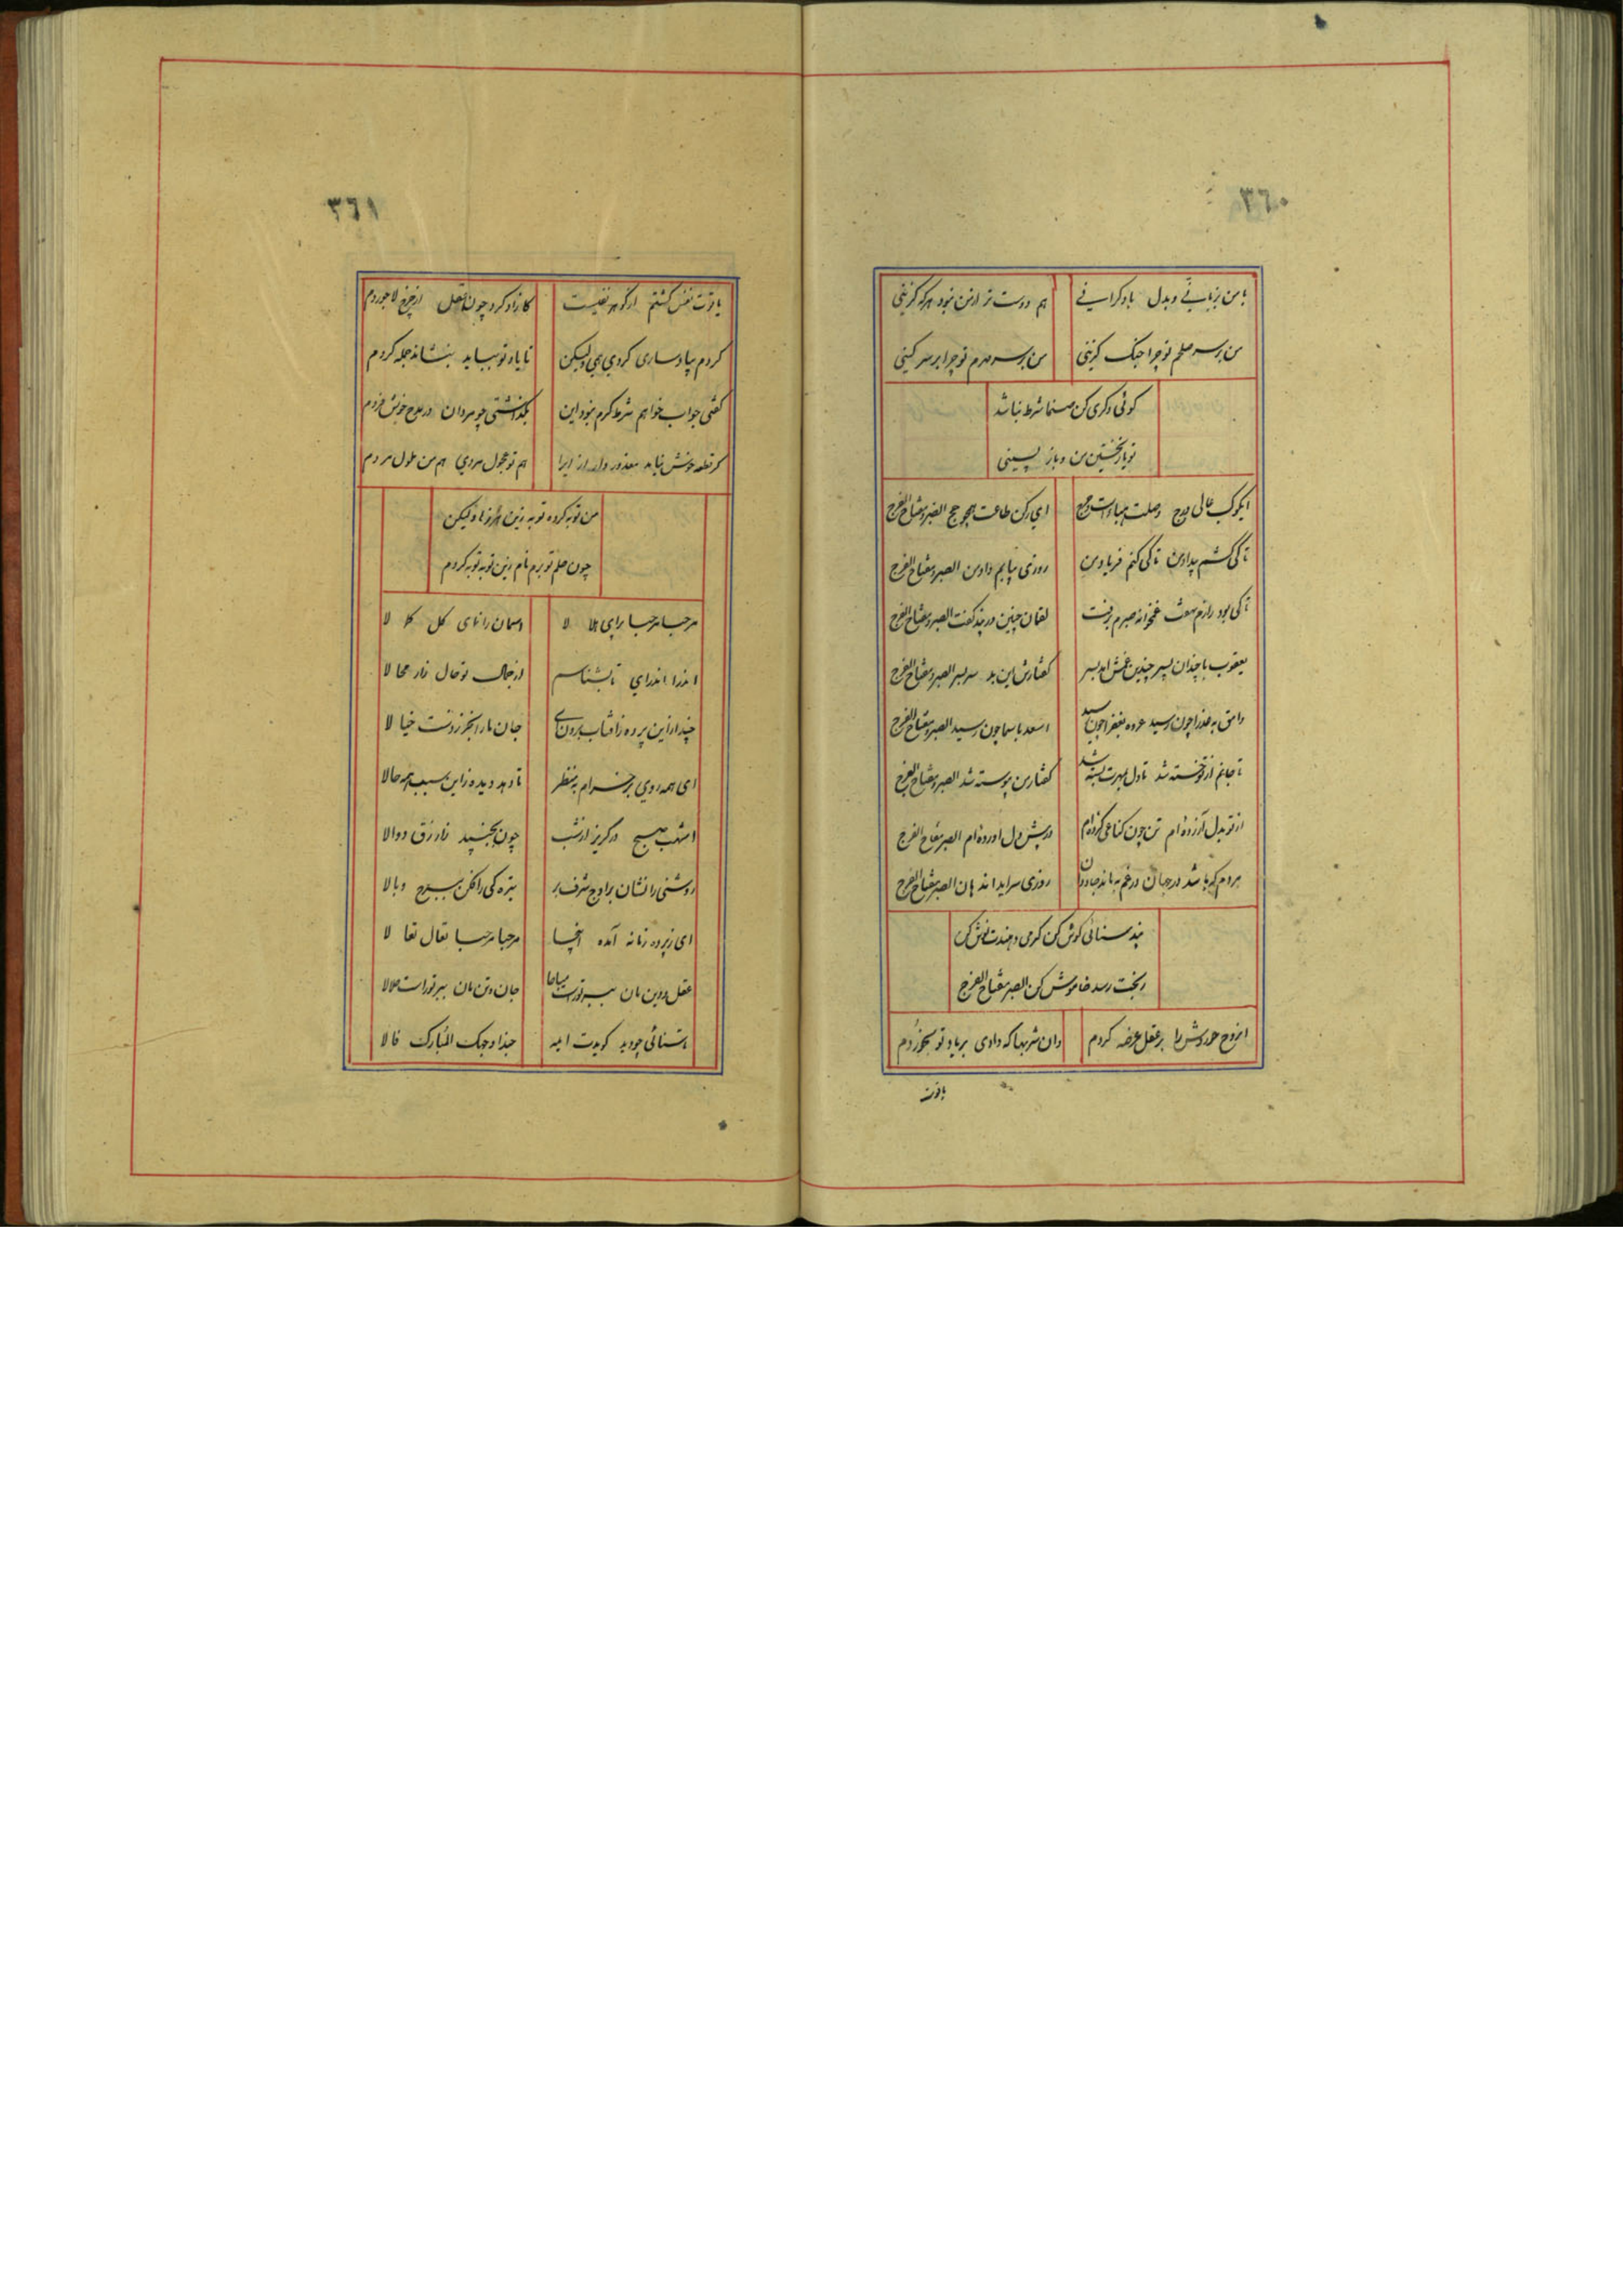 ٣٦٠
با من بزبانی و بدل با دگرانی هم دوست تر از من نبود هرکه گزینی
من بر سر صلحم تو چرا جنگ گزینی من بر سر مهرم تو چرا بر سر کینی
گوئی دگری کن صنما شرط نباشد
تو یار نخستین من و باز پسینی
ای کوکب عالی درج وصلت ای رکن طاعت همچو حج الصبر مفتاح الفرج
تا کی کشم بیداد من تا کی کنم فریاد من روزی بیابم داد من الصبر مفتاح الفرج
تا کی بود رازم نهفت غم خانه صبرم برفت لقمان چنین در پند گفت الصبر مفتاح الفرج
یعقوب با چندان پسر چندین غمش آمد بسر گفتارش این بد سربسر الصبر مفتاح الفرج
وامق به عذرا چون رسید عروه بعفرا چون رسید اسعد باسما چون رسید الصبر مفتاح الفرج
تا جانم از تو خسته شد تا دل بمهرت بسته شد گفتار من پیوسته شد الصبر مفتاح الفرج
از تو بدل آزرده ام تن چون کناغی کرده ام در پیش دل آورده ام الصبر مفتاح الفرج
مردم که باشد در جهان در غم نماند جاودان روزی سراید اندهان الصبر مفتاح الفرج
پند سنائی گوش کن گرمی دهندت نوش کن
بختت رسد خاموش کن الصبر مفتاح الفرج
اندوه خود را بر عقل عرضه کردم وان شربها که دادی بر یاد تو بخوردم
یاقوت
٣٦١
یاقوت نفس گشتم از گوهر نفیست کازاد کرد چون لعل از چرخ لاجوردم
کردم بباد ساری کردی همی ولیکن تا باد تو بیاید بنشاند جمله گردم
گفتی جواب خواهم شرط کرم نبود این بگذاشتی چو مردان در مدح خویش فردم
گر قطعه خوش نیاید معذور دار ازیرا هم تو عجول مردی هم من ملول مردم
من توبه کرده توبه زین ولیکن
چون صلح تو بدیدم زین توبه توبه کردم
مرحبا مرحبا برای هلا لا آسمان را نمای کل کلا لا
اندرا اندرای تا بشناسم از جمال تو حال نار محالا
چند ازین پرده ز آفتاب برون آی جان ما را بخر ز دست خیالا
ای همه روی برخرام به منظر تا دهد دیده زاین سبب همه حالا
اشهب صبح در گریز از شب چون بجنبید دوالا
روشنی را نشان بر اوج شرف بر تیره گی را فکن ببرج وبالا
ای ز پرده زمانه آمده اینجا مرحبا مرحبا تعال تعالا
عقل و دین مان ببر تراست مباحا جان و تن مان ببر تراست حلالا
تا سنائی چو دید گویدت ایمه حبذا وجهک المبارک فالا